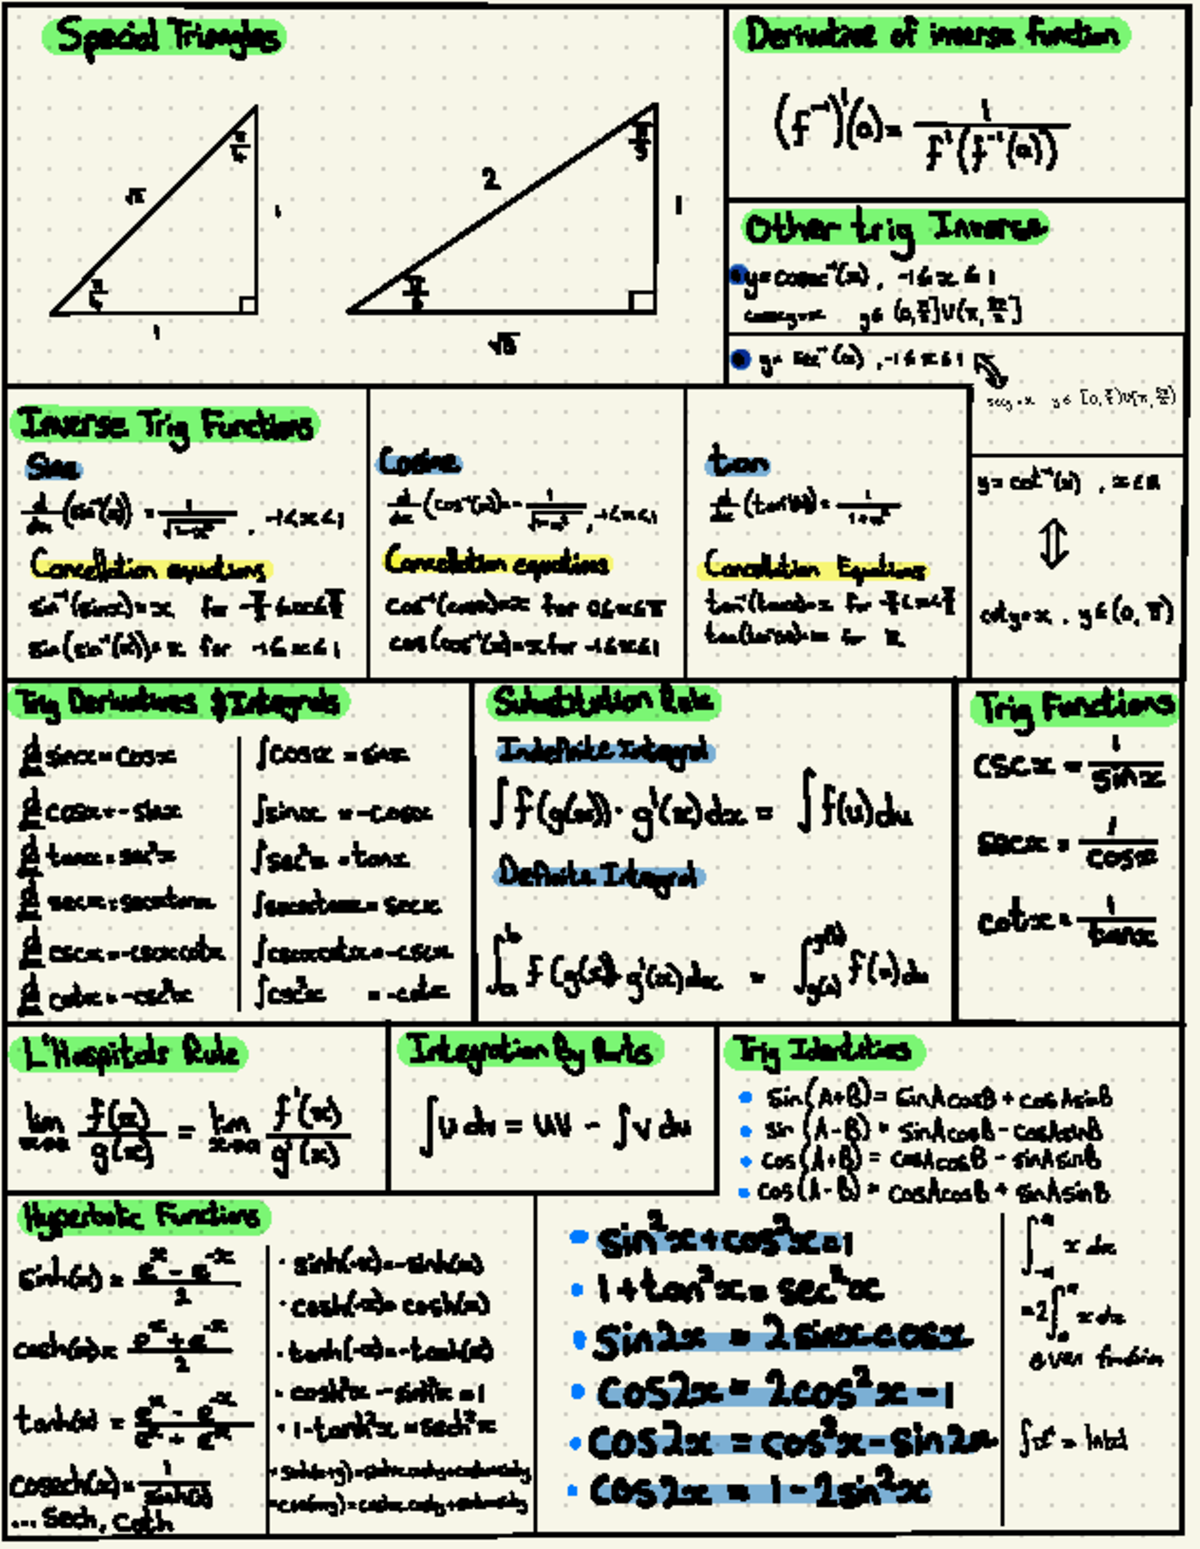 Special Triangles
√2
π/4
1
π/4
1
2
π/3
1
π/6
√3
Derivative of inverse function
(f⁻¹)'(a) = 1/f'(f⁻¹(a))
Other trig Inverse
y=cosec⁻¹(x), -1≤x≤1
y∈(0,π/2]∪(π,3π/2]
y=sec⁻¹(x), -1≤x≤1
secy=x y∈[0,π/2)∪[π,3π/2)
y=cot⁻¹(x), x∈R
⇕
coty=x, y∈(0,π)
Inverse Trig Functions
Sine
d/dx(sin⁻¹(x)) = 1/√(1-x²), -1<x<1
Cancellation equations
sin⁻¹(sinx)=x for -π/2≤x≤π/2
sin(sin⁻¹(x))=x for -1≤x≤1
Cosine
d/dx(cos⁻¹(x))=-1/√(1-x²), -1<x<1
Cancellation equations
cos⁻¹(cosx)=x for 0≤x≤π
cos(cos⁻¹(x))=x for -1≤x≤1
tan
d/dx(tan⁻¹(x)) = 1/(1+x²)
Cancellation Equations
tan⁻¹(tanx)=x for -π/2<x<π/2
tan(tan⁻¹(x))=x for R
Trig Derivatives & Integrals
d/dx sinx = cosx
d/dx cosx = -sinx
d/dx tanx = sec²x
d/dx secx = secxtanx
d/dx cscx = -cscxcotx
d/dx cotx = -csc²x
∫cosx = sinx
∫sinx = -cosx
∫sec²x = tanx
∫secxtanx = secx
∫cscxcotx = -cscx
∫csc²x = -cotx
Substitution Rule
Indefinite Integral
∫f(g(x))·g'(x)dx = ∫f(u)du
Definite Integral
∫ₐᵇ f(g(x))g'(x)dx = ∫_g(a)^g(b) f(u)du
Trig Functions
cscx = 1/sinx
secx = 1/cosx
cotx = 1/tanx
L'Hospitals Rule
lim x→a f(x)/g(x) = lim x→a f'(x)/g'(x)
Integration By Parts
∫u dv = uv - ∫v du
Trig Identities
sin(A+B) = sinAcosB + cosAsinB
sin(A-B) = sinAcosB - cosAsinB
cos(A+B) = cosAcosB - sinAsinB
cos(A-B) = cosAcosB + sinAsinB
sin²x+cos²x=1
1+tan²x = sec²x
sin2x = 2sinxcosx
cos2x = 2cos²x-1
cos2x = cos²x-sin2x
cos2x = 1-2sin²x
∫₋ₐᵃ x dx
=2∫₀ᵃ x dx
even function
Hyperbolic Functions
sinh(x) = (eˣ-e⁻ˣ)/2
cosh(x) = (eˣ+e⁻ˣ)/2
tanh(x) = (eˣ-e⁻ˣ)/(eˣ+e⁻ˣ)
cosech(x) = 1/sinh(x)
... Sech, Coth
sinh(-x)=-sinh(x)
cosh(-x)=cosh(x)
tanh(-x)=-tanh(x)
cosh²x-sinh²x=1
1-tanh²x=sech²x
sinh(x+y)=sinhxcoshy+coshxsinhy
cosh(x+y)=coshxcoshy+sinhxsinhy